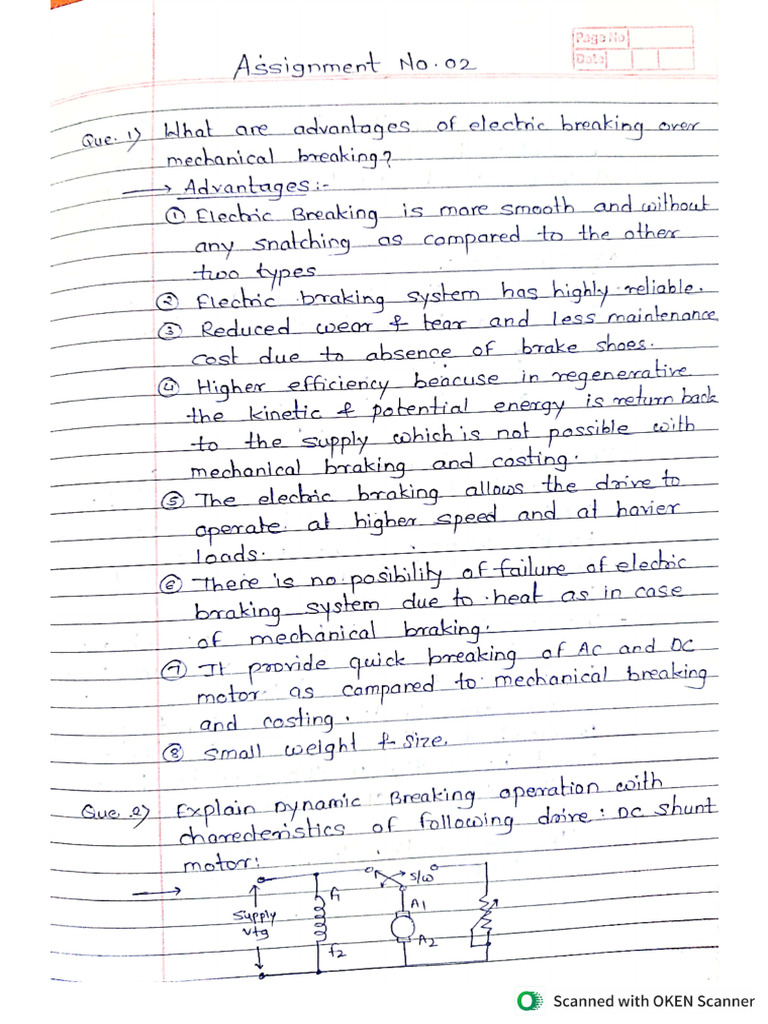 Page No
Date
Assignment No. 02
Que. 1) What are advantages of electric breaking over
mechanical breaking?
→ Advantages:-
① Electric Breaking is more smooth and without
any snatching as compared to the other
two types
② Electric braking system has highly reliable.
③ Reduced wear & tear and less maintenance
cost due to absence of brake shoes.
④ Higher efficiency beacuse in regenerative
the kinetic & potential energy is return back
to the supply which is not possible with
mechanical braking and costing.
⑤ The electric braking allows the drive to
operate at higher speed and at havier
loads.
⑥ There is no posibility of failure of electric
braking system due to heat as in case
of mechanical braking.
⑦ It provide quick breaking of AC and DC
motor as compared to mechanical breaking
and costing.
⑧ small weight & size.
Que. 2) Explain Dynamic Breaking operation with
charecteristics of following drive: DC shunt
motor:
→
S/W
f1
A1
supply
vtg
f2
A2
Scanned with OKEN Scanner